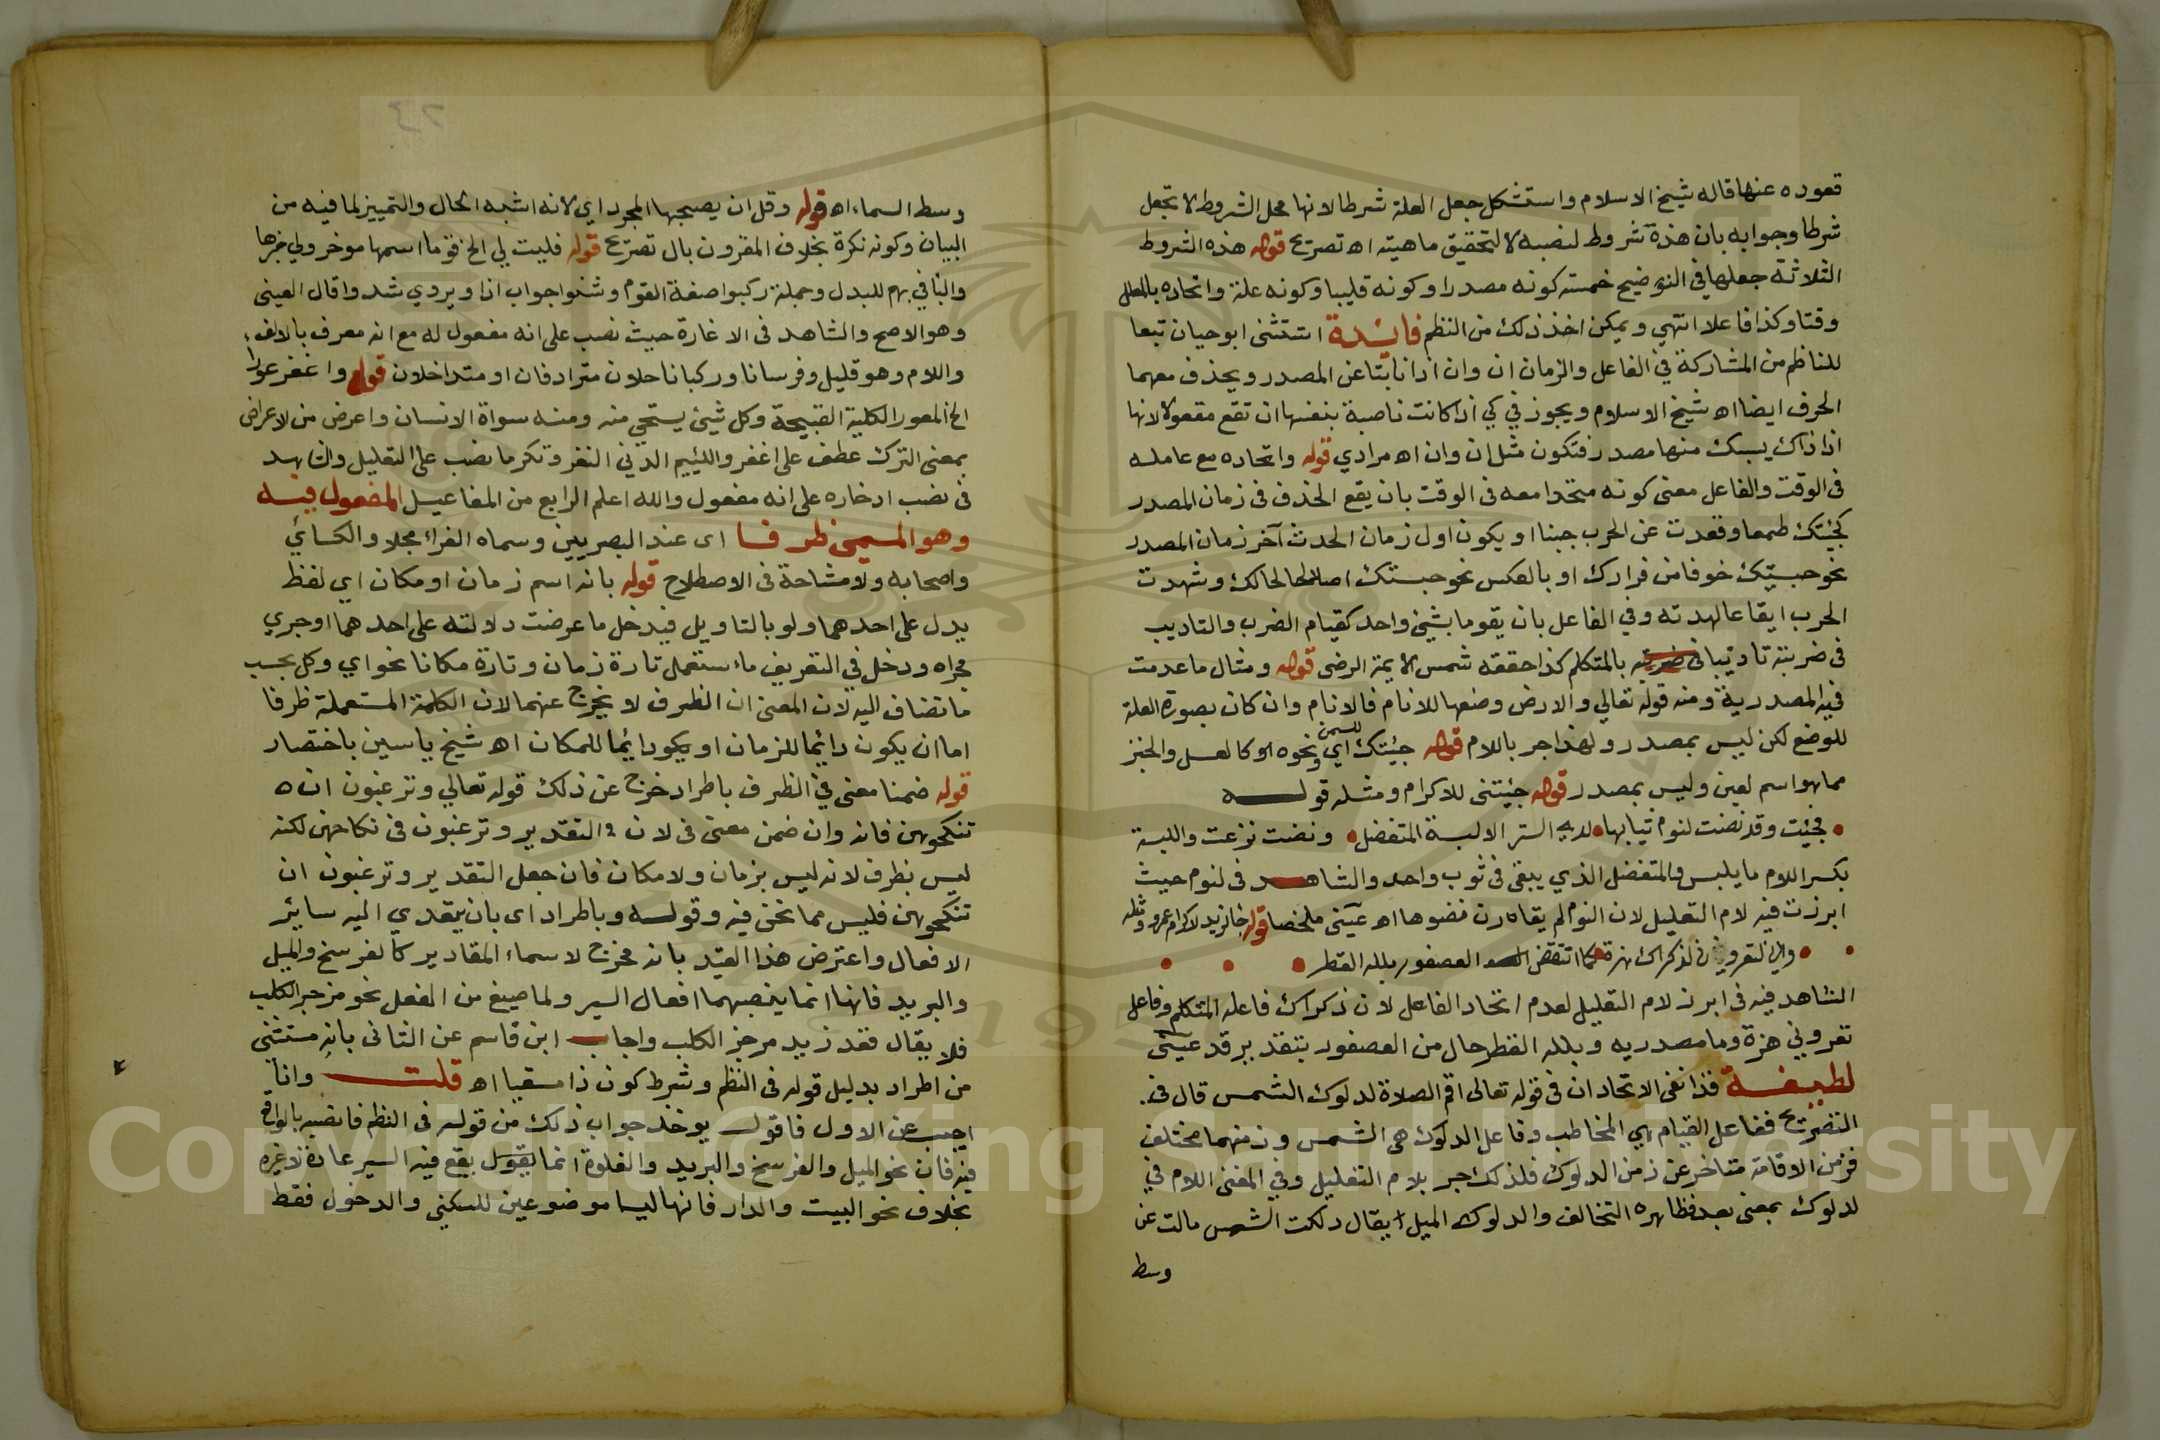 قعوده عنها قاله شيخ الاسلام واستشكل جعل العلة شرطا لانها محل الشروط لا تجعل
شرطا وجوابه بان هذه شروط لنصبه لا لتحقيق ماهيته اه تصريح قوله هذه الشروط
الثلاثة جعلها في التوضيح خمسة كونه مصدرا وكونه قلبيا وكونه علة واتحاده بالمعلل
وقتا وكذا فاعلا انتهي ويمكن اخذ ذلك من النظم فائدة استثنى ابو حيان تبعا
للناظم من المشاركة في الفاعل والزمان ان وان اذا نابتا عن المصدر ويحذف معهما
الحرف ايضا اه شيخ الاسلام ويجوز في كي اذا كانت ناصبة بنفسها ان تقع مفعولا لانها
اذ ذاك يسبك منها مصدر فتكون مثل ان وان اه مرادي قوله واتحاده مع عامله
في الوقت والفاعل معنى كونه متحدا معه في الوقت بان يقع الحدث في زمان المصدر
كجئتك طمعا وقعدت عن الحرب جبنا او يكون اول زمان الحدث آخر زمان المصدر
نحو حبستك خوفا من فرارك او بالعكس نحو جئتك اصلاحا لحالك وشهدت
الحرب ايقاعا لهدنه وفي الفاعل بان يقوما بشئ واحد كقيام الضرب والتاديب
في ضربته تاديبا في ضربته بالمتكلم كذا حققه شمس الايمة الرضى قوله ومثال ما عدمت
فيه المصدرية ومنه قوله تعالي والارض وضعها للانام فالانام وان كان بصورة العلة
للوضع لكن ليس بمصدر ولهذا جر باللام قوله جئتك اي للسمن ونحوه او كالعسل والخبز
مما هو اسم لعين وليس بمصدر قوله جئتني للاكرام ومثله قوله
فجئت وقد نضت لنوم ثيابها لدى الستر الا لبسة المتفضل ونضت نزعت واللبسة
بكسر اللام ما يلبس والمتفضل الذي يبقى في ثوب واحد والشاهد في لنوم حيث
ابرزت فيه لام التعليل لان النوم لم يقارن نضوها اه عيني ملخصا قوله جا زيد لاكرام عمرو ومثله
واني لتعروني لذكراك هزة كما انتفض العصفور بلله القطر
الشاهد فيه في ابراز لام التعليل لعدم اتحاد الفاعل لان ذكراك فاعله المتكلم وفاعل
تعروني هزة وما مصدرية وبلله القطر حال من العصفور بتقدير قد عيني
لطيفة قد انتفى الاتحاد ان في قوله تعالى اقم الصلاة لدلوك الشمس قال في
التصريح ففاعل القيام هي المخاطب وفاعل الدلوك هي الشمس وزمنهما مختلف
فزمن الاقامة متاخر عن زمن الدلوك فلذلك جر بلام التعليل وفي المغنى اللام في
لدلوك بمعنى بعد فظاهره التخالف والدلوك الميل يقال دلكت الشمس مالت عن
وسط
وسط السماء اه قوله وقل ان يصحبها المجرد اي لانه اشبه الحال والتمييز لما فيه من
البيان وكونه نكرة بخلاف المقرون بال تصريح قوله فليت لي الخ قوما اسمها موخر ولي خبرها
والبا في بهم للبدل وجملة ركبوا صفة القوم وشنوا جواب اذا ويروي شدوا قال العيني
وهو الاصح والشاهد في الاغارة حيث نصب على انه مفعول له مع انه معرف بالالف
واللام وهو قليل وفرسانا وركبانا حالان مترادفان او متداخلان قوله واغفر عورا
الخ المعورا الكلمة القبيحة وكل شئ يستحي منه ومنه سواة الانسان واعرض من الاعراض
بمعنى الترك عطف على اغفر واللئيم الدني النفر وتكرما نصب على التعليل والشاهد
في نصب ادخاره على انه مفعول والله اعلم الرابع من المفاعيل المفعول فيه
وهو المسمى ظرفا اى عند البصريين وسماه الفراء محلا والكسائي
واصحابه ولا مشاحة في الاصطلاح قوله بانه اسم زمان او مكان اي لفظ
يدل على احدهما ولو بالتاويل فيدخل ما عرضت دلالته على احدهما او جري
مجراه ودخل في التعريف ما ستعمل تارة زمان وتارة مكانا نحو اي وكل بحسب
ما تضاف اليه لان المعنى ان الظرف لا يخرج عنهما لان الكلمة المستعملة ظرفا
اما ان يكون دائما للزمان او يكون دائما للمكان اه شيخ ياسين باختصار
قوله ضمنا معنى في الظرف باطراد خرج عن ذلك قوله تعالي وترغبون ان
تنكحوهن فانه وان ضمن معنى في لان في التقدير وترغبون في نكاحهن لكنه
ليس بظرف لانه ليس بزمان ولا مكان فان جعل التقدير وترغبون ان
تنكحوهن فليس مما نحن فيه وقوله وباطراد اى بان يتعدي اليه سائر
الافعال واعترض هذا القيد بانه مخرج لاسماء المقادير كالفرسخ والميل
والبريد فانها انما ينصبهما افعال السير ولما صيغ من الفعل نحو مزجر الكلب
فلا يقال قعد زيد مزجر الكلب واجاب ابن قاسم عن الثاني بانه مستثنى
من اطراد بدليل قوله في النظم وشرط كون ذا مقيسا اه قلت وانا
اجيب عن الاول فاقول يوخذ جواب ذلك من قوله في النظم فانصبه بالواقع
فيه فان نحو الميل والفرسخ والبريد والغلوة انما يقع فيه السير عادة لا غيره
بخلاف نحو البيت والدار فانها ليسا موضوعين للسكنى والدخول فقط
Copyright © King Saud University